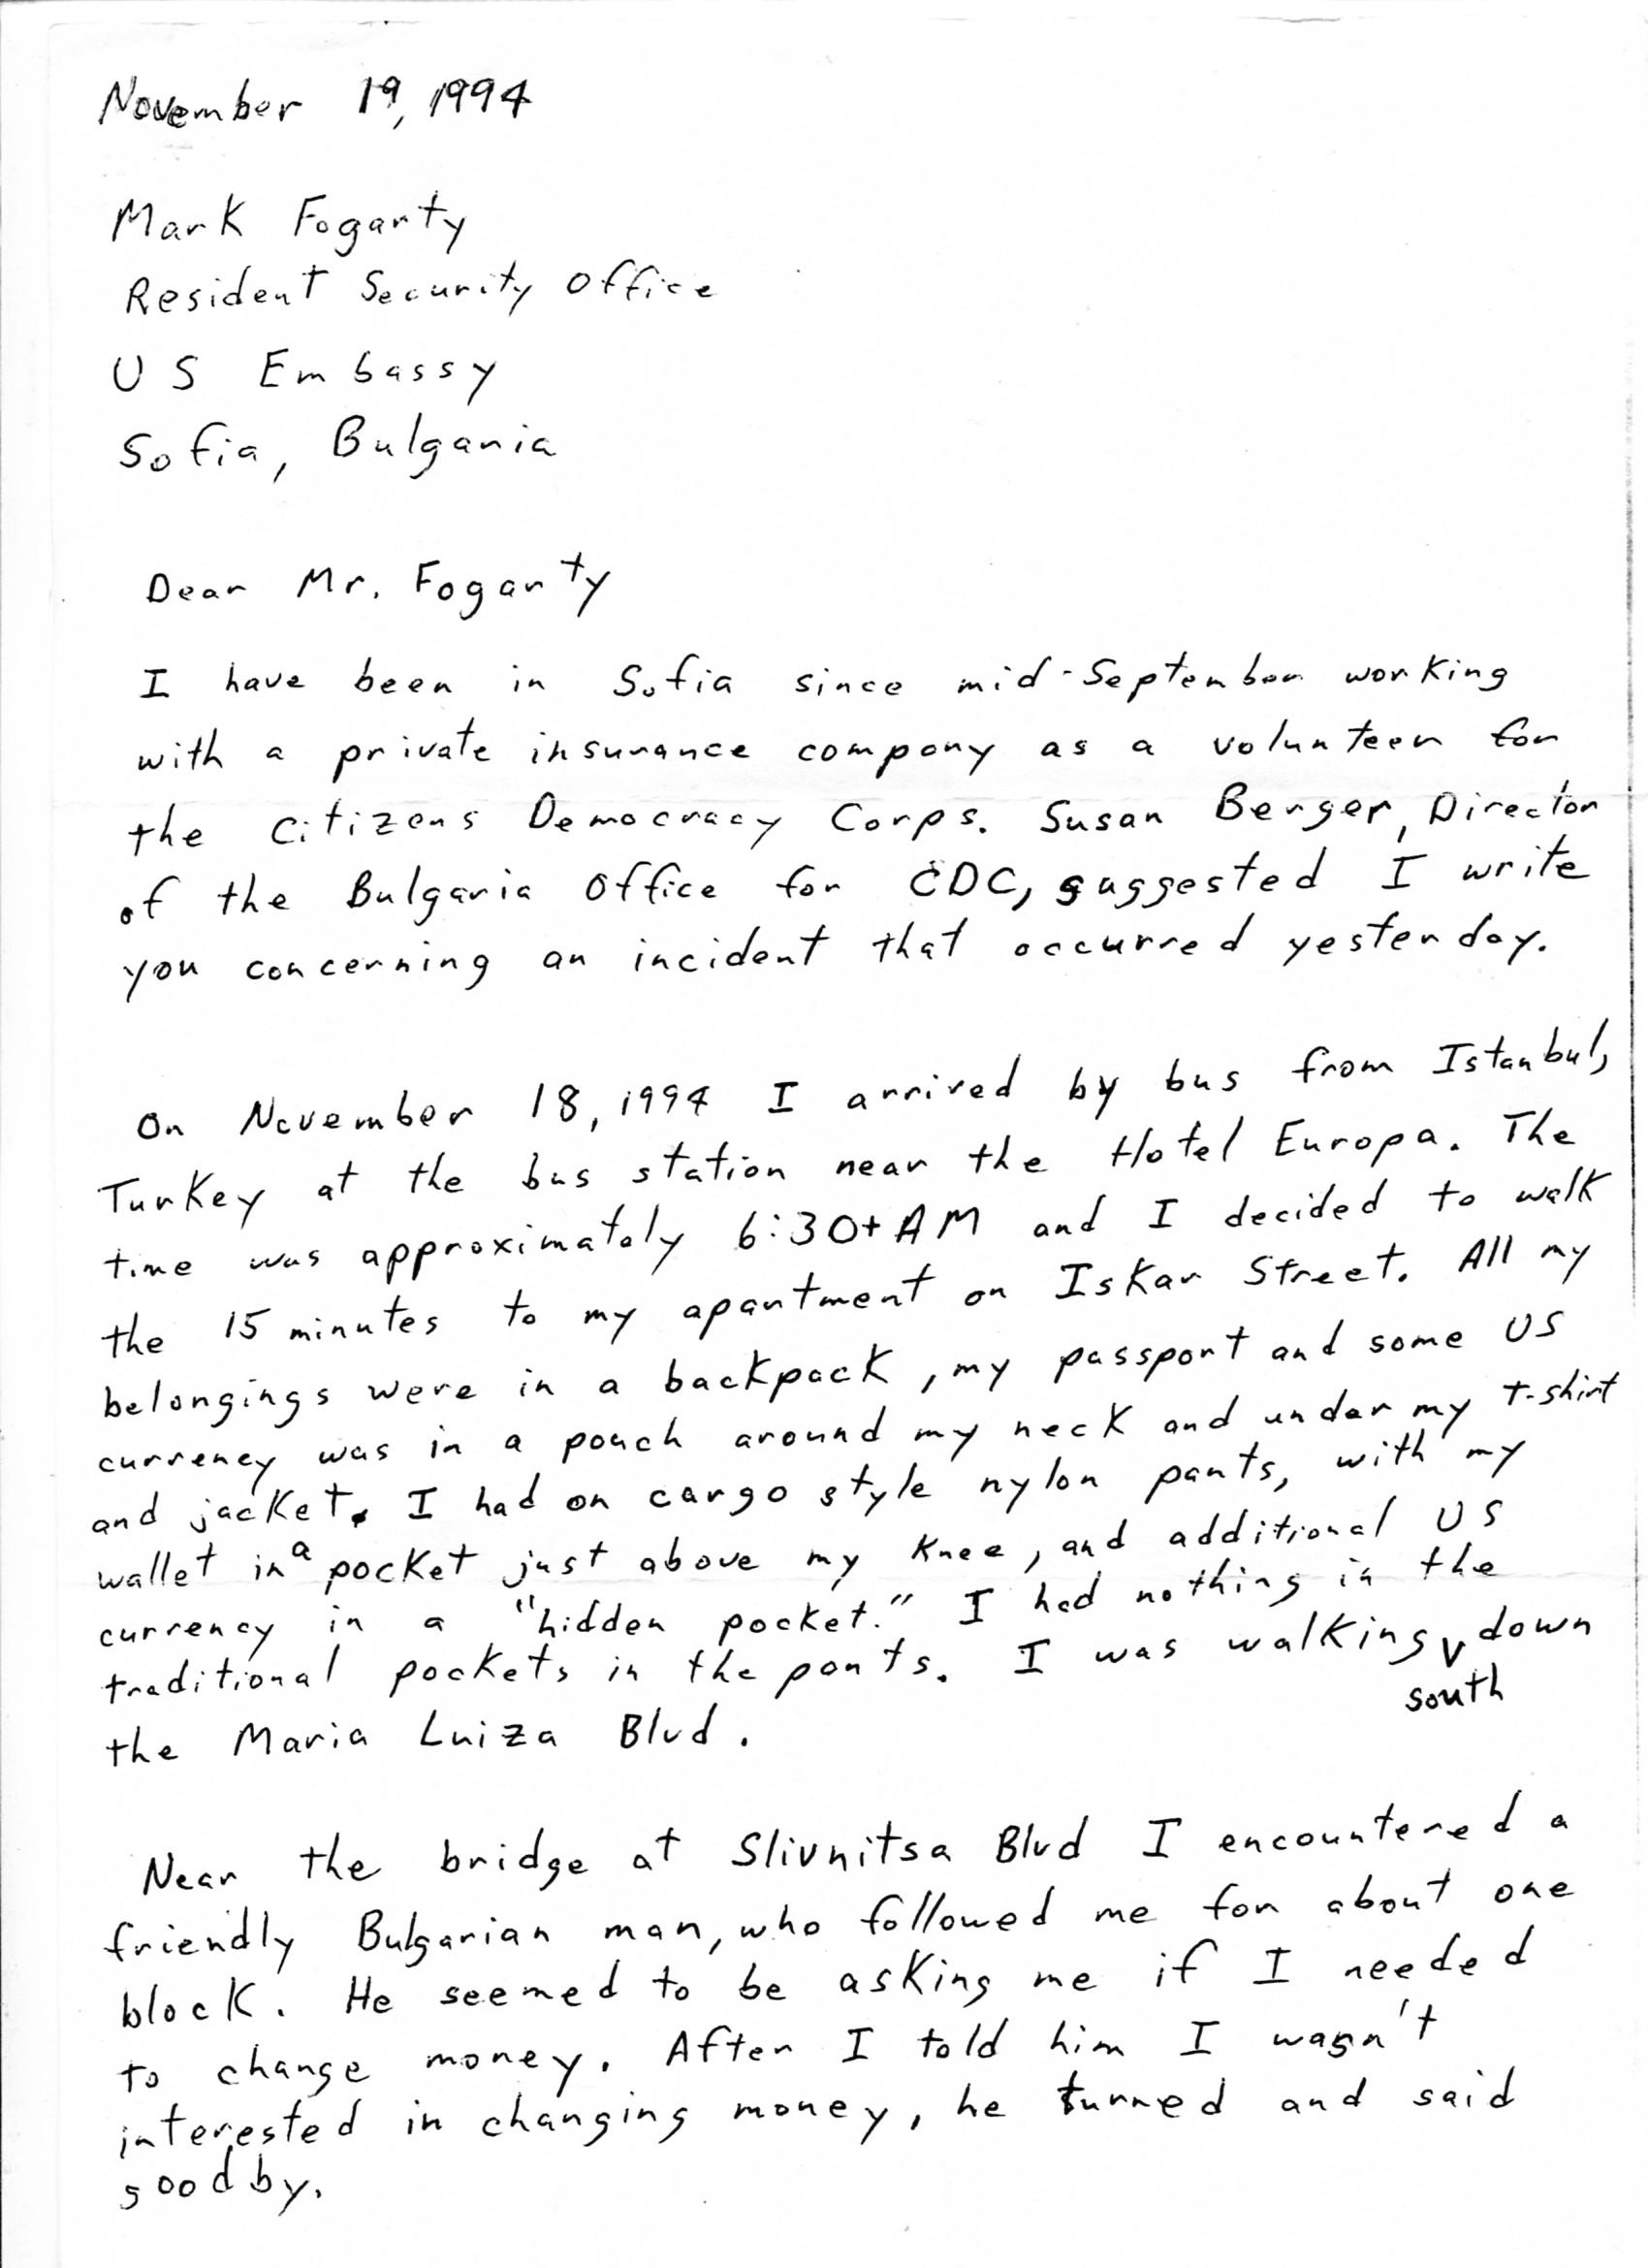 November 19, 1994
Mark Fogarty
Resident Security Office
US Embassy
Sofia, Bulgaria
Dear Mr. Fogarty
I have been in Sofia since mid-September working
with a private insurance company as a volunteer for
the Citizens Democracy Corps. Susan Berger, Director
of the Bulgaria Office for CDC, suggested I write
you concerning an incident that occurred yesterday.
On November 18, 1994 I arrived by bus from Istanbul,
Turkey at the bus station near the Hotel Europa. The
time was approximately 6:30+AM and I decided to walk
the 15 minutes to my apartment on Iskar Street. All my
belongings were in a backpack, my passport and some US
currency was in a pouch around my neck and under my t-shirt
and jacket. I had on cargo style nylon pants, with my
wallet in a pocket just above my knee, and additional US
currency in a "hidden pocket." I had nothing in the
traditional pockets in the pants. I was walking south down
the Maria Luiza Blvd.
Near the bridge at Slivnitsa Blvd I encountered a
friendly Bulgarian man, who followed me for about one
block. He seemed to be asking me if I needed
to change money. After I told him I wasn't
interested in changing money, he turned and said
goodby.